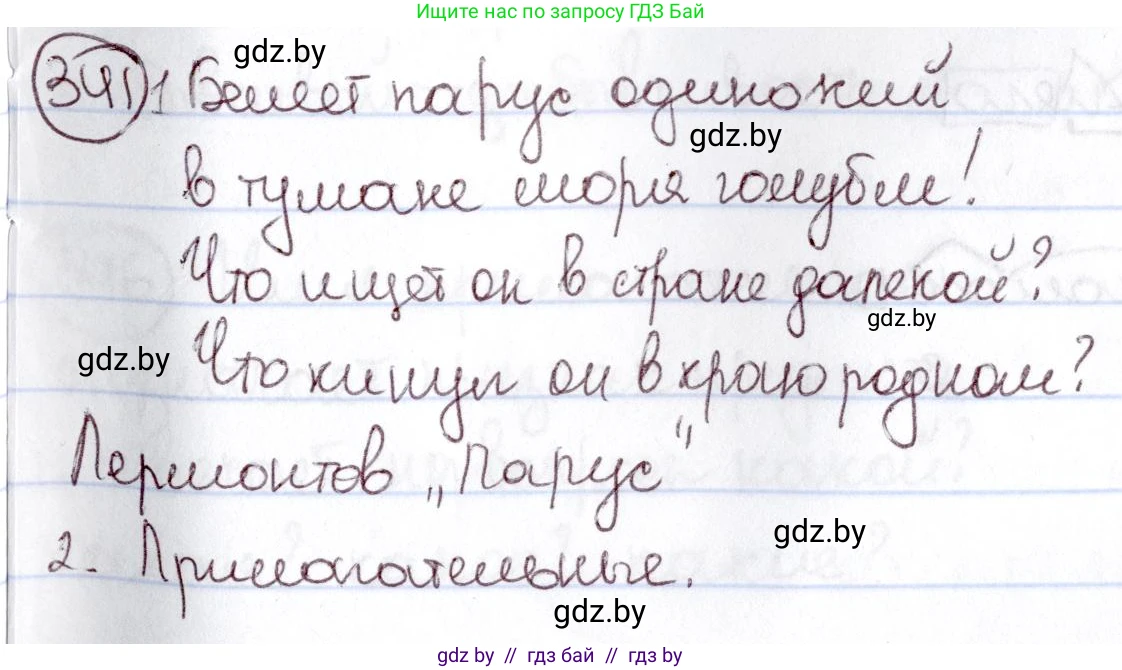 Ищите нас по запросу ГДЗ Бай
gdz.by
341 1 Белеет парус одинокий
gdz.by
в тумане моря голубом!
Что ищет он в стране далекой?
gdz.by
gdz.by
Что кинул он в краю родном?
Лермонтов „Парус“
gdz.by
2. Прилагательные.
gdz.by
gdz by // гдз бай // гдз by